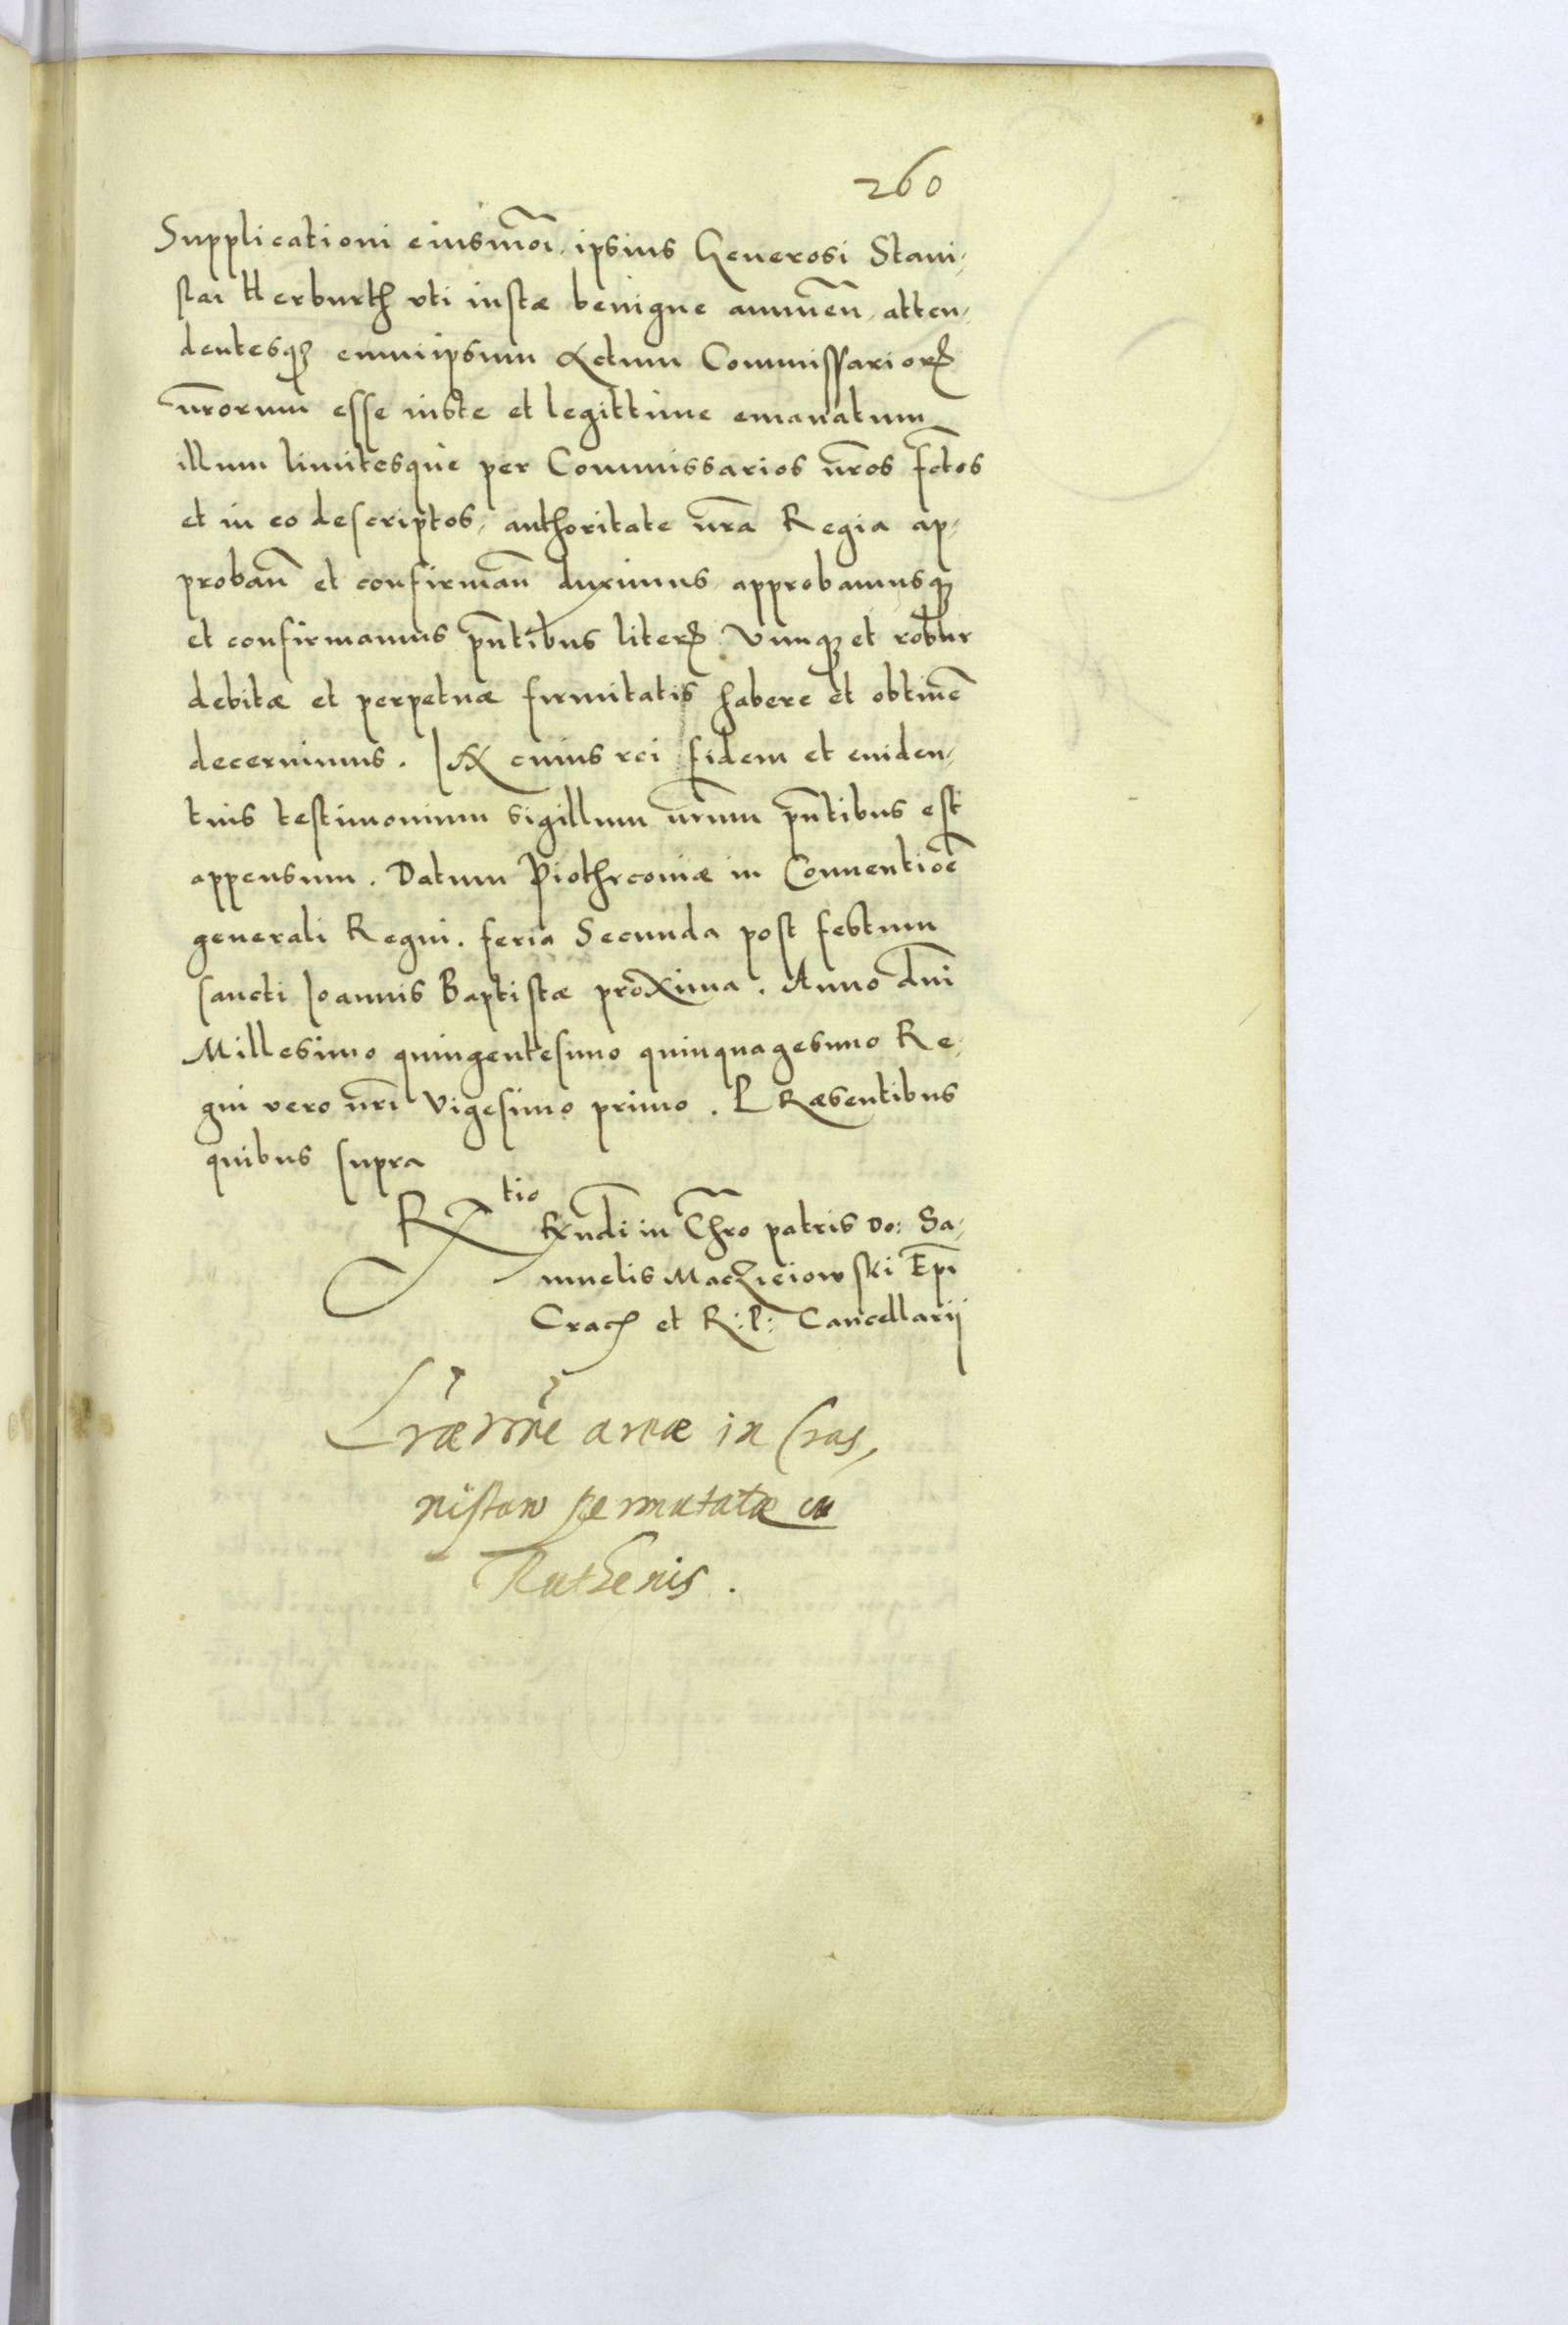 260
Supplicationi eiusmoi ipsius Generosi Stani,
slai Herburth vti iustæ benigne annuen̄, atten,
dentesq3 eumipsum Actum Commissarior
nr̄orum esse iuste et legittime emanatum
illum limitesque per Commissarios nr̄os fctos
et in eo descriptos, authoritate nr̄a Regia ap,
proban̄ et confirman̄ duximus approbamusq3
et confirmamus pn̄tibus liter Vimq3 et robur
debitæ et perpetuæ firmitatis habere et obtinē
decernimus. In cuius rei fidem et euiden,
tius testimonium sigillum nr̄um pn̄tibus est
appensum. Datum Piothrcouiæ in Conuentiōe
generali Regni. feria Secunda post festum
sancti Joannis Baptistæ proxima. Anno dn̄i
Millesimo quingentesimo quinquagesimo Re,
gni vero nr̄i Vigesimo primo. PRæsentibus
quibus supra
Rtio
Rn̄di in Chro patris Do: Sa,
muelis Macżieiowski Epi
Crac et R: P: Cancellarij
Lræ rōne areæ in Cras,
nistaw permutatæ cu
Ruthenis.